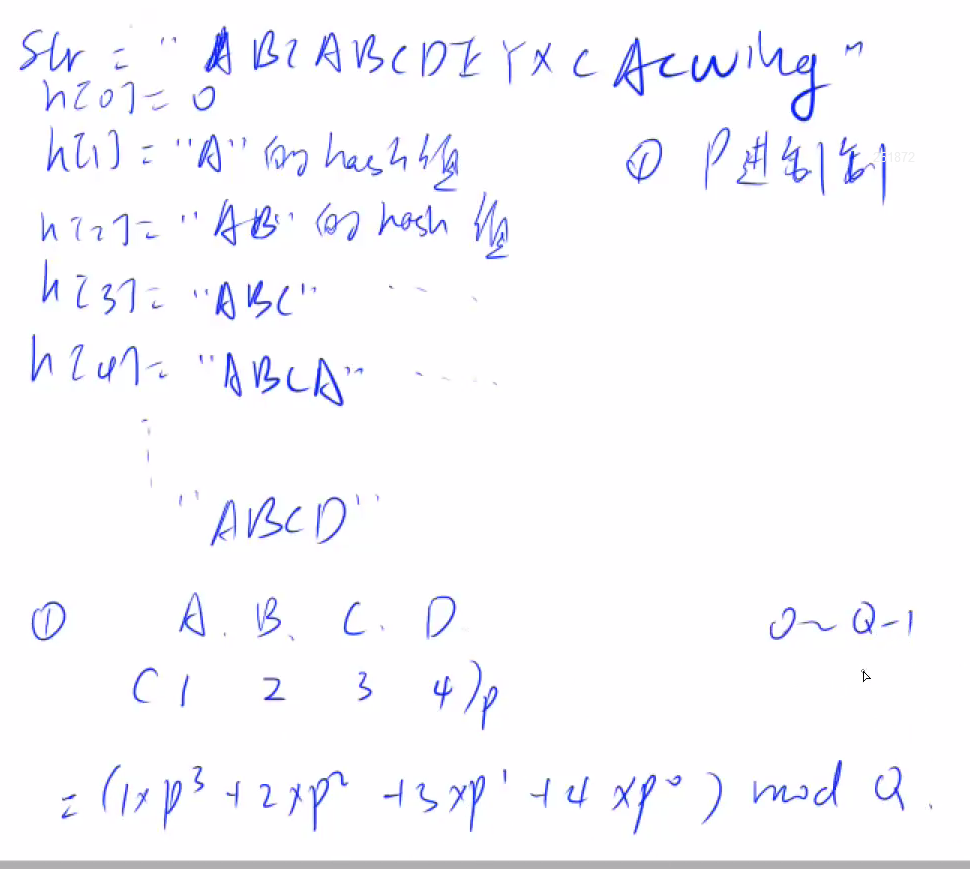 Str = "ABCABCDEYXCAcwing"
h[0] = 0
h[1] = "A" 的 hash 值
① P进制制
h[2] = "AB" 的 hash 值
h[3] = "ABC" ....
h[4] = "ABCA" ....
"ABCD"
① A. B. C. D
0~Q-1
(1 2 3 4)p
= (1×p³ + 2×p² + 3×p¹ + 4×p⁰) mod Q.